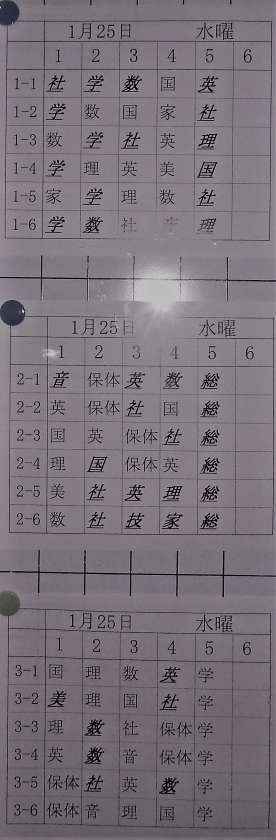 1月25日 水曜
1 2 3 4 5 6
1-1 社 学 数 国 英
1-2 学 数 国 家 社
1-3 数 学 社 英 理
1-4 学 理 英 美 国
1-5 家 学 理 数 社
1-6 学 数 社 理
1月25日 水曜
1 2 3 4 5 6
2-1 音 保体 英 数 総
2-2 英 保体 社 国 総
2-3 国 英 保体 社 総
2-4 理 国 保体 英 総
2-5 美 社 英 理 総
2-6 数 社 技 家 総
1月25日 水曜
1 2 3 4 5 6
3-1 国 理 数 英 学
3-2 美 理 国 社 学
3-3 理 数 社 保体 学
3-4 英 数 音 保体 学
3-5 保体 社 英 数 学
3-6 保体 音 理 国 学